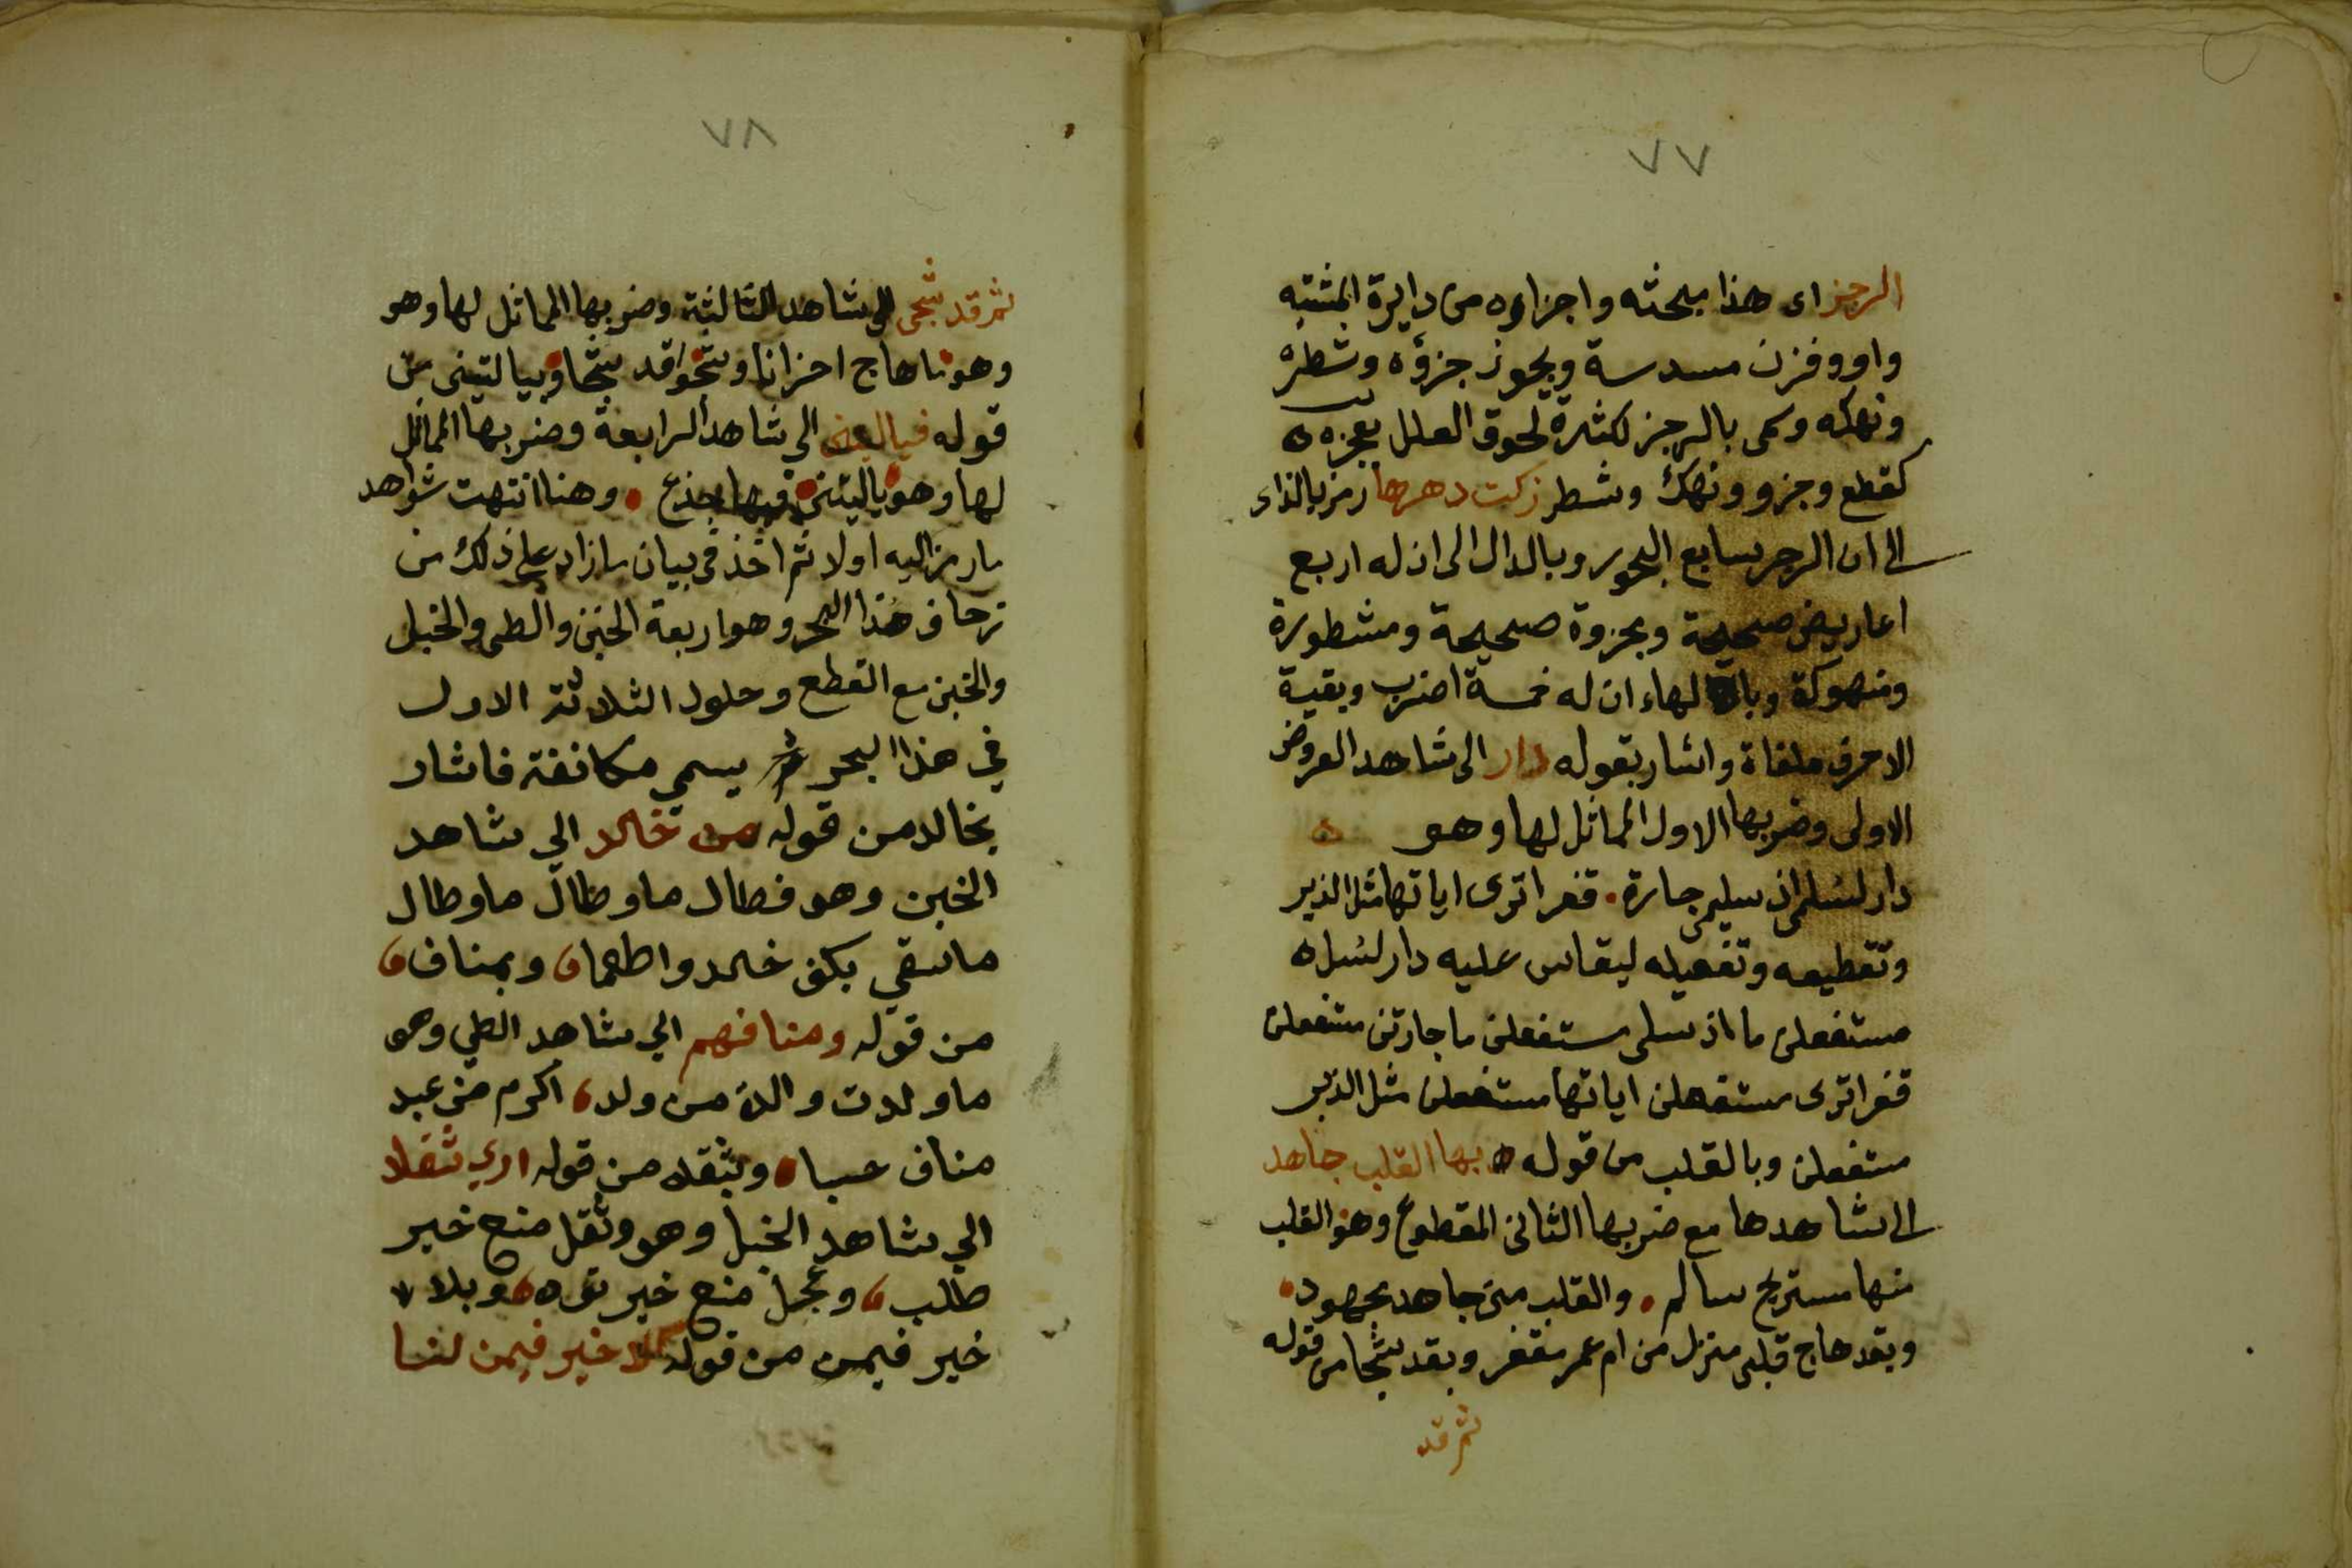 ٧٧
الرجز اى هذا مبحثه واجزاوه من دايرة المشتبه
واووفزن مسدسة ويجوز جزؤه وشطره
ونهكه وسمى بالرجز لكثرة لحوق العلل بعجزه
كقطع وجزو ونهك وشطر زكت دهرها رمز بالزاء
الى ان الرجز سابع البحور وبالدال الى ان له اربع
اعاريض صحيحة ومجزوة صحيحة ومشطورة
ومنهوكة وبالهاء ان له خمسة اضرب وبقية
الاحرف ملغاة واشار بقوله دار الى شاهد العروض
الاولى وضربها الاول المماثل لها وهو
دار لسلمى اذ سليمى جارة قفرا ترى اياتها مثل الزبر
وتقطيعه وتفعيله ليقاس عليه دار لسل
مستفعلن ما اذ سلى مستفعلن ما جارتن مستفعلن
قفرا ترى مستفعلن اياتها مستفعلن مثل الزبر
مستفعلن وبالقلب من قوله بها القلب جاهد
الى شاهدها مع ضربها الثانى المقطوع وهو القلب
منها مستريح سالم والقلب منى جاهد مجهود
وبقد هاج قلبى منزل من ام عمر مقفر وبقد شجا من قوله
ثم قد
٧٨
ثم قد شجى الى شاهد الثالثة وضربها المماثل لها وهو
وهو ما هاج احزانا وشجوا قد شجا وبياليتنى من
قوله فياليتنى الى شاهد الرابعة وضربها المماثل
لها وهو ياليتنى فيها جذع وهنا انتهت شواهد
ما رمز اليه اولا ثم اخذ فى بيان ما زاد على ذلك من
زحاف هذا البحر وهو اربعة الخبن والطى والخبل
والخبن مع القطع وحلول الثلاثة الاول
في هذا البحر يسمي مكانفة فاشار
بخالد من قوله من خالد الي شاهد
الخبن وهو فطال ما وطال ما وطال
ما سقي بكف خالد واطعما وبمناف
من قوله ومنافهم الي شاهد الطي وهو
ما ولدت والدة من ولد اكرم من عبد
مناف حسبا وبثقل من قوله اري ثقلا
الي شاهد الخبل وهو وثقل منع خير
طلب وعجل منع خير تؤده وبلا
خير فيمن من قوله لا خير فيمن لنا